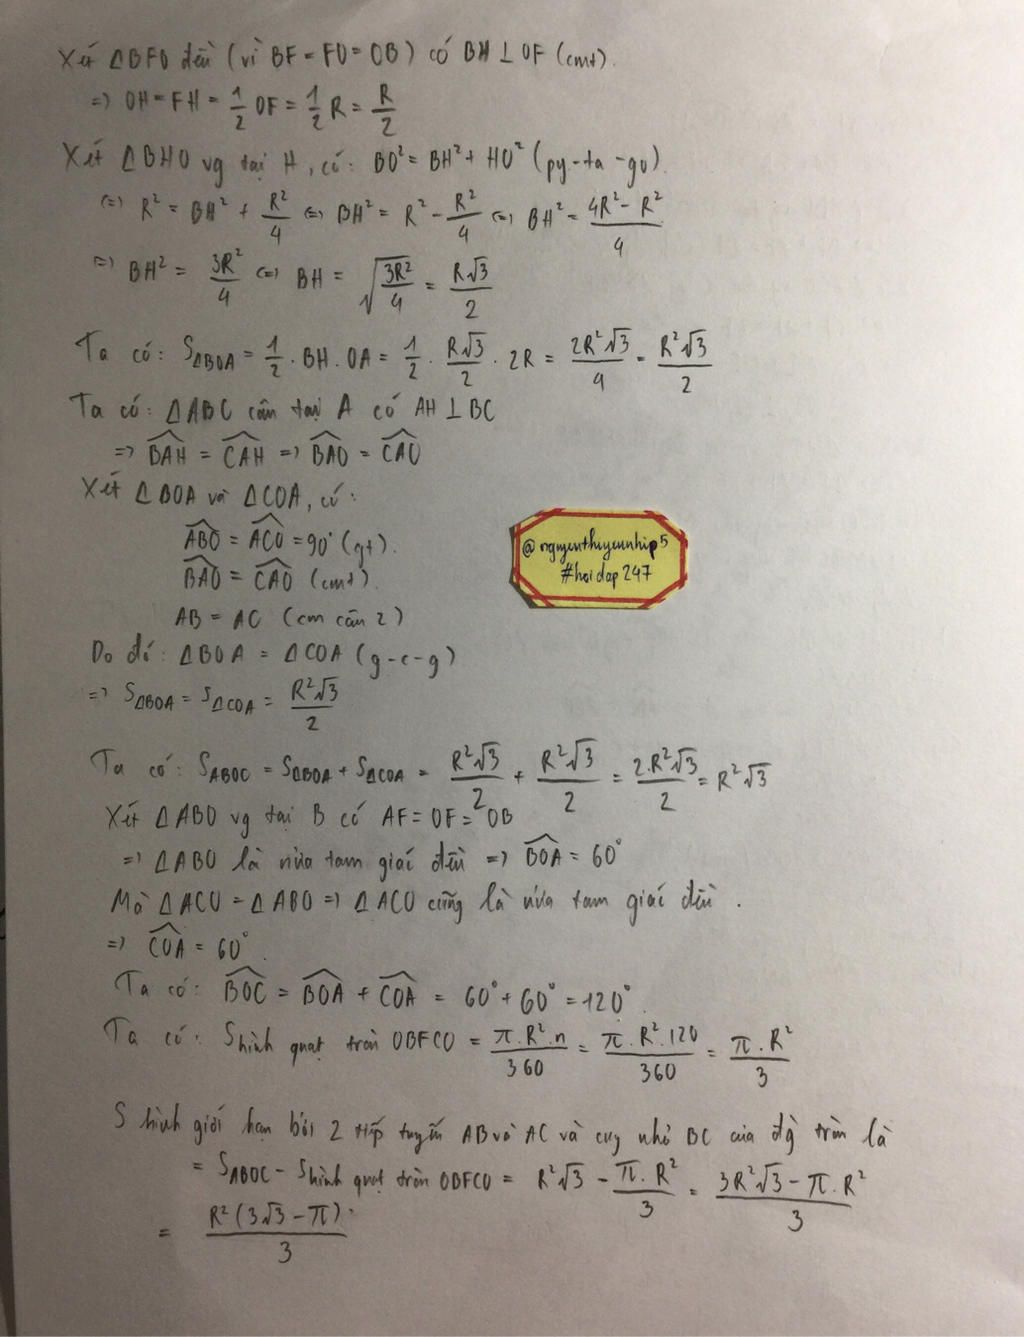 Xét ΔBFO đều (vì BF = FO = OB) có BH ⊥ OF (cmt).
=> OH = FH = 1/2 OF = 1/2 R = R/2
Xét ΔBHO vg tại H, có: BO² = BH² + HO² (py-ta-go).
<=> R² = BH² + R²/4 <=> BH² = R² - R²/4 <=> BH² = (4R² - R²)/4
<=> BH² = 3R²/4 <=> BH = √(3R²/4) = R√3/2
Ta có: SΔBOA = 1/2 . BH . OA = 1/2 . R√3/2 . 2R = 2R²√3/4 = R²√3/2
Ta có: ΔABC cân tại A có AH ⊥ BC
=> \widehat{BAH} = \widehat{CAH} => \widehat{BAO} = \widehat{CAO}
Xét ΔBOA và ΔCOA, có:
\widehat{ABO} = \widehat{ACO} = 90° (gt).
\widehat{BAO} = \widehat{CAO} (cmt).
AB = AC (cm câu 2)
@nguyenthuyennhip5
#hoidap247
Do đó: ΔBOA = ΔCOA (g-c-g)
=> SΔBOA = SΔCOA = R²√3/2
Ta có: SABOC = SΔBOA + SΔCOA = R²√3/2 + R²√3/2 = 2.R²√3/2 = R²√3
Xét ΔABO vg tại B có AF = OF = OB
=> ΔABO là nửa tam giác đều => \widehat{BOA} = 60°
Mà ΔACO = ΔABO => ΔACO cũng là nửa tam giác đều.
=> \widehat{COA} = 60°.
Ta có: \widehat{BOC} = \widehat{BOA} + \widehat{COA} = 60° + 60° = 120°.
Ta có: S hình quạt tròn OBFCO = π.R².n/360 = π.R².120/360 = π.R²/3
S hình giới hạn bởi 2 tiếp tuyến AB và AC và cung nhỏ BC của đg tròn là
= SABOC - S hình quạt tròn OBFCO = R²√3 - π.R²/3 = (3R²√3 - π.R²)/3
= R²(3√3 - π)/3.